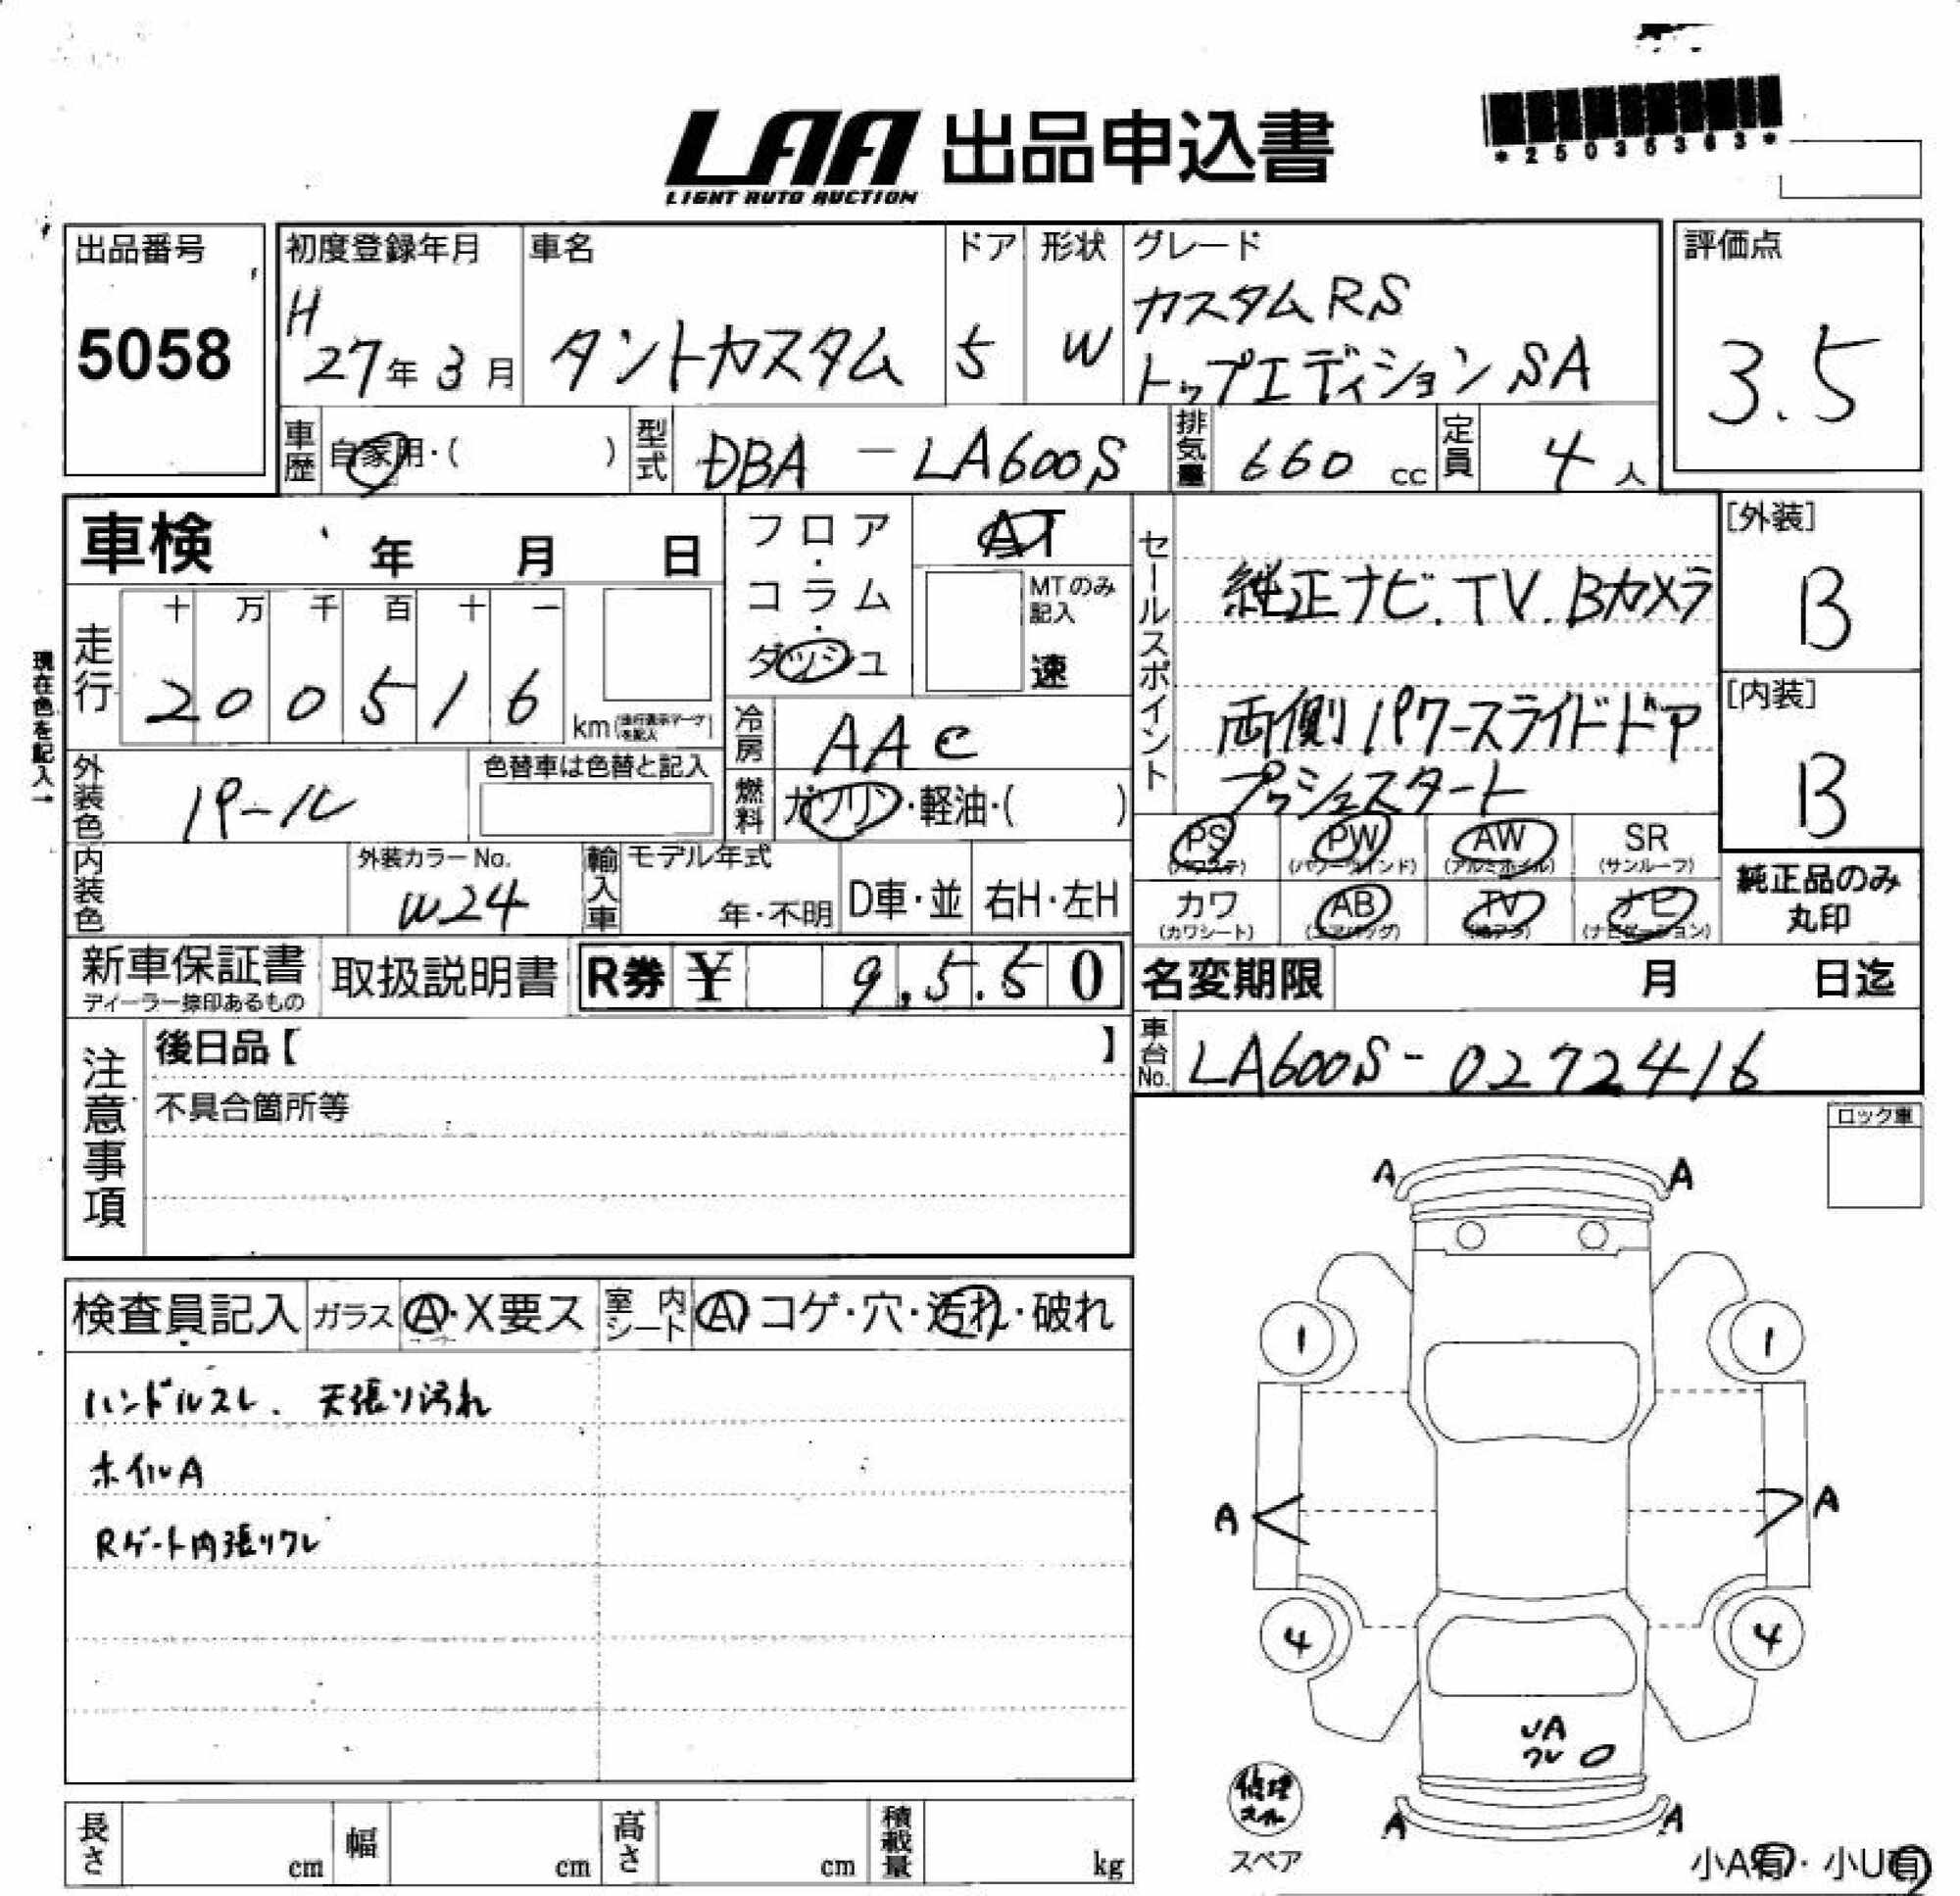 *25035363*
LAA 出品申込書
LIGHT AUTO AUCTION
出品番号
5058
初度登録年月
H
27年 3月
車名
タントカスタム
ドア
5
形状
W
グレード
カスタムRS
トップエディションSA
評価点
3.5
車歴
自家用・( )
型式
DBA - LA600S
排気量
660 cc
定員
4 人
車検 年 月 日
現在色を記入→
走行
十 万 千 百 十 一
2 0 0 5 1 6
km
フロア
・
コラム
・
ダッシュ
AT
MTのみ
記入
速
冷房
AAC
燃料
ガソリン・軽油・( )
セールスポイント
純正ナビ.TV.Bカメラ
両側パワースライドドア
プッシュスタート
[外装]
B
[内装]
B
外装色
パール
色替車は色替と記入
内装色
外装カラーNo.
W24
輸入車
モデル年式
年・不明
D車・並
右H・左H
PS
(パワステ)
PW
(パワーウインド)
AW
(アルミホイル)
SR
(サンルーフ)
カワ
(カワシート)
AB
(エアバッグ)
TV
ナビ
(ナビゲーション)
純正品のみ
丸印
新車保証書
ディーラー捺印あるもの
取扱説明書
R券 ¥ 9,550
名変期限 月 日迄
車台No.
LA600S-0272416
注意事項
後日品【 】
不具合箇所等
ロック車
検査員記入
ガラス
A・X要ス
室内
シート
A コゲ・穴・汚れ・破れ
ハンドルスレ. 天張り汚れ
ホイルA
Rゲート内張りワレ
A A
1 1
A A
4 4
UA
ワレ
修理
キット
スペア
A A
小A有・小U有
長さ cm
幅 cm
高さ cm
積載量 kg